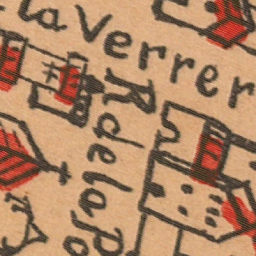 la Verrer
R. de la Po